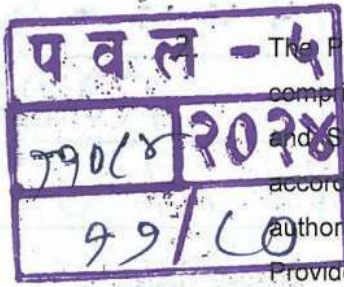 पवल - ५
११०८४ २०२४
११/८०
2. The P
compri
and S
accord
author
Provide